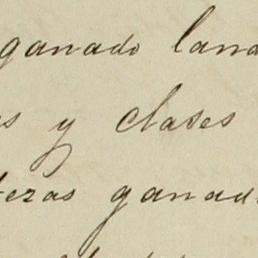 ganado lana
s y clases
teras ganad